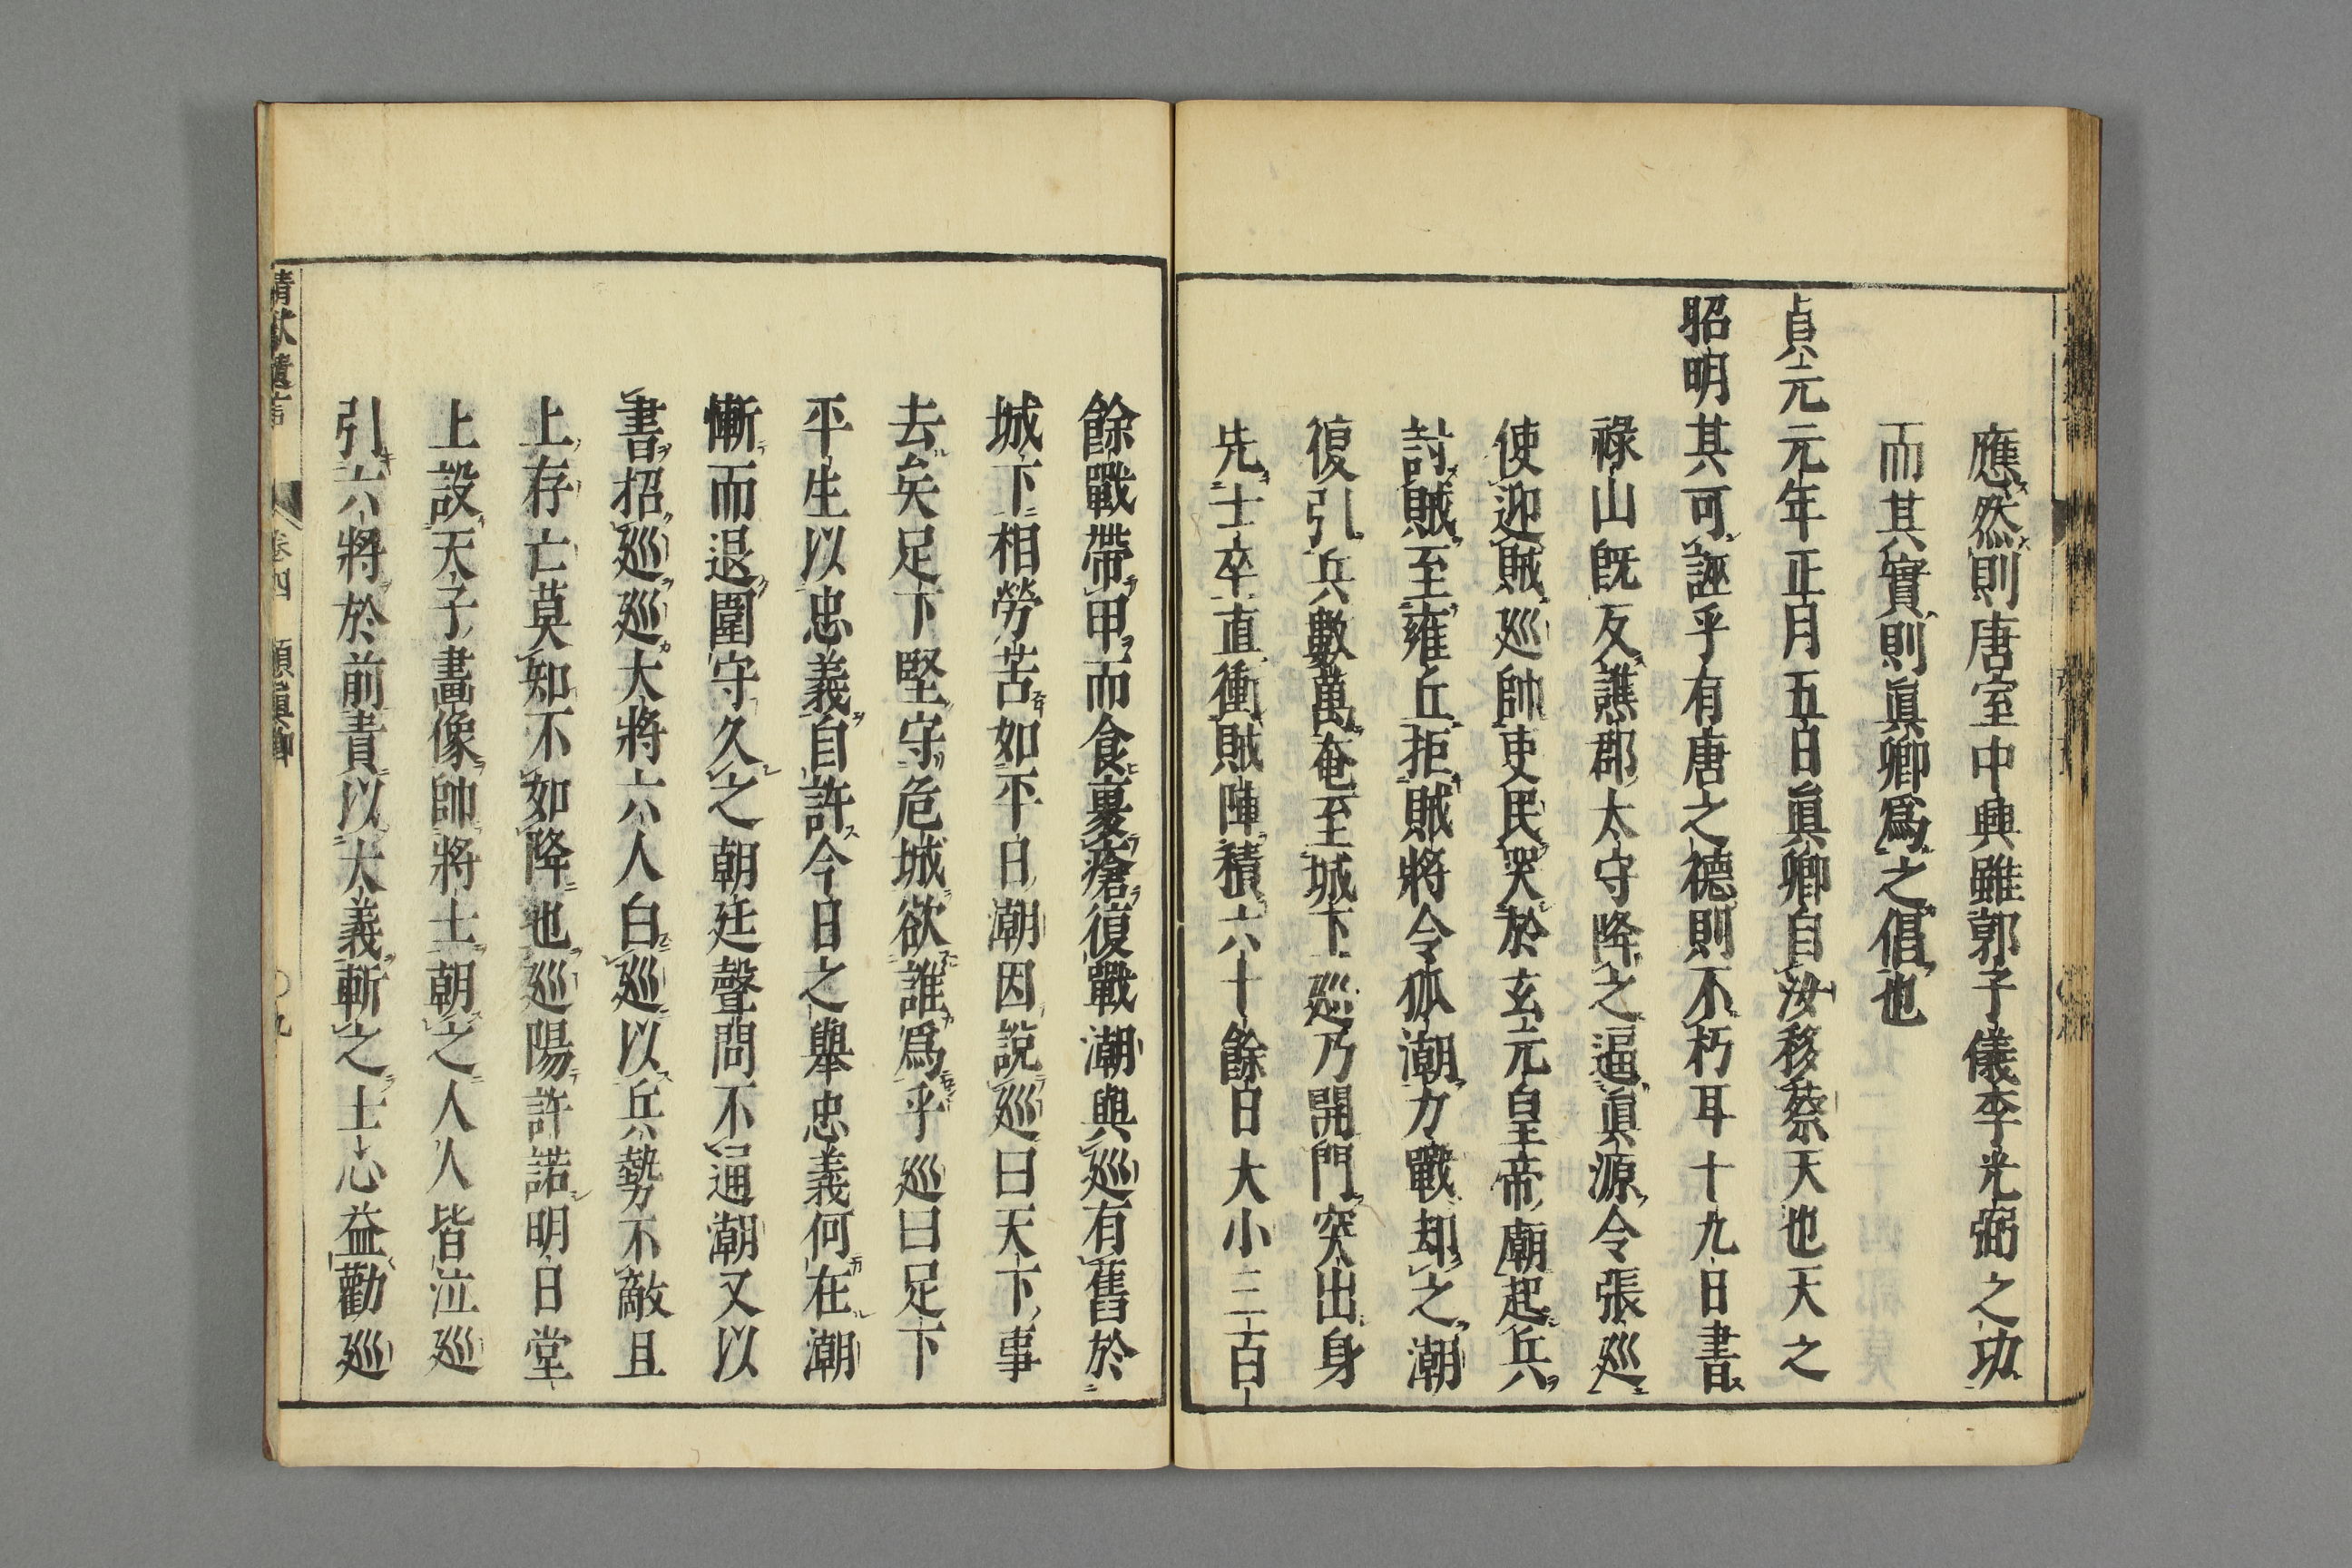 應然則唐室中興雖郭子儀李光弼之功
而其實則眞卿爲之倡也
貞元元年正月五日眞卿自汝移蔡天也天之
昭明其可誣乎有唐之德則不朽耳十九日書
祿山既反譙郡太守降之逼眞源令張巡
使迎賊巡帥吏民哭於玄元皇帝廟起兵
討賊至雍丘拒賊將令狐潮力戰却之潮
復引兵數萬奄至城下巡乃開門突出身
先士卒直衝賊陣積六十餘日大小三百
餘戰帶甲而食裹瘡復戰潮與巡有舊於
城下相勞苦如平日潮因說巡曰天下事
去矣足下堅守危城欲誰爲乎巡曰足下
平生以忠義自許今日之舉忠義何在潮
慚而退圍守久之朝廷聲問不通潮又以
書招巡巡大將六人白巡以兵勢不敵且
上存亡莫知不如降也巡陽許諾明日堂
上設天子畫像帥將士朝之人人皆泣巡
引六將於前責以大義斬之士心益勸巡
靖献遺言 卷四 顏眞卿 〇九